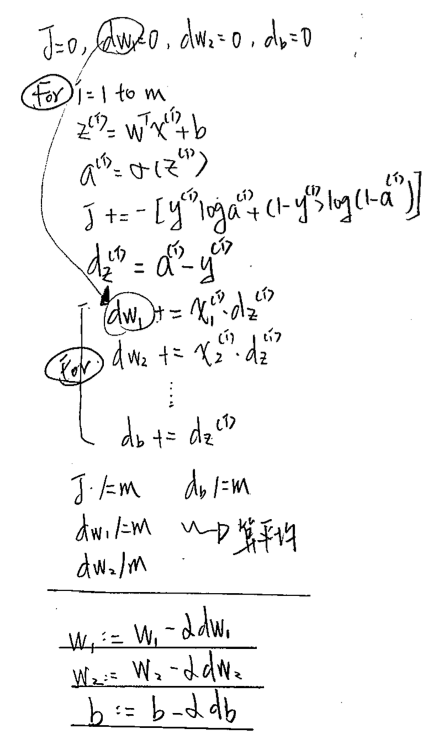 J=0, dw₁=0, dw₂=0, db=0
For i=1 to m
z⁽ⁱ⁾=wᵀx⁽ⁱ⁾+b
a⁽ⁱ⁾=σ(z⁽ⁱ⁾)
J += -[y⁽ⁱ⁾loga⁽ⁱ⁾+(1-y⁽ⁱ⁾)log(1-a⁽ⁱ⁾)]
dz⁽ⁱ⁾ = a⁽ⁱ⁾-y⁽ⁱ⁾
dw₁ += x₁⁽ⁱ⁾·dz⁽ⁱ⁾
For dw₂ += x₂⁽ⁱ⁾·dz⁽ⁱ⁾
⋮
db += dz⁽ⁱ⁾
J /=m db /=m
dw₁/=m → 算平均
dw₂/m
w₁:= w₁-αdw₁
w₂:= w₂-αdw₂
b := b-αdb